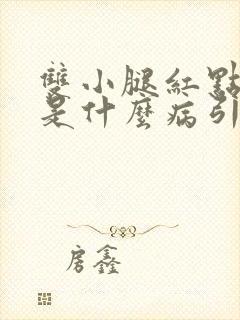 雙小腿紅點
是什麼病引
房鑫